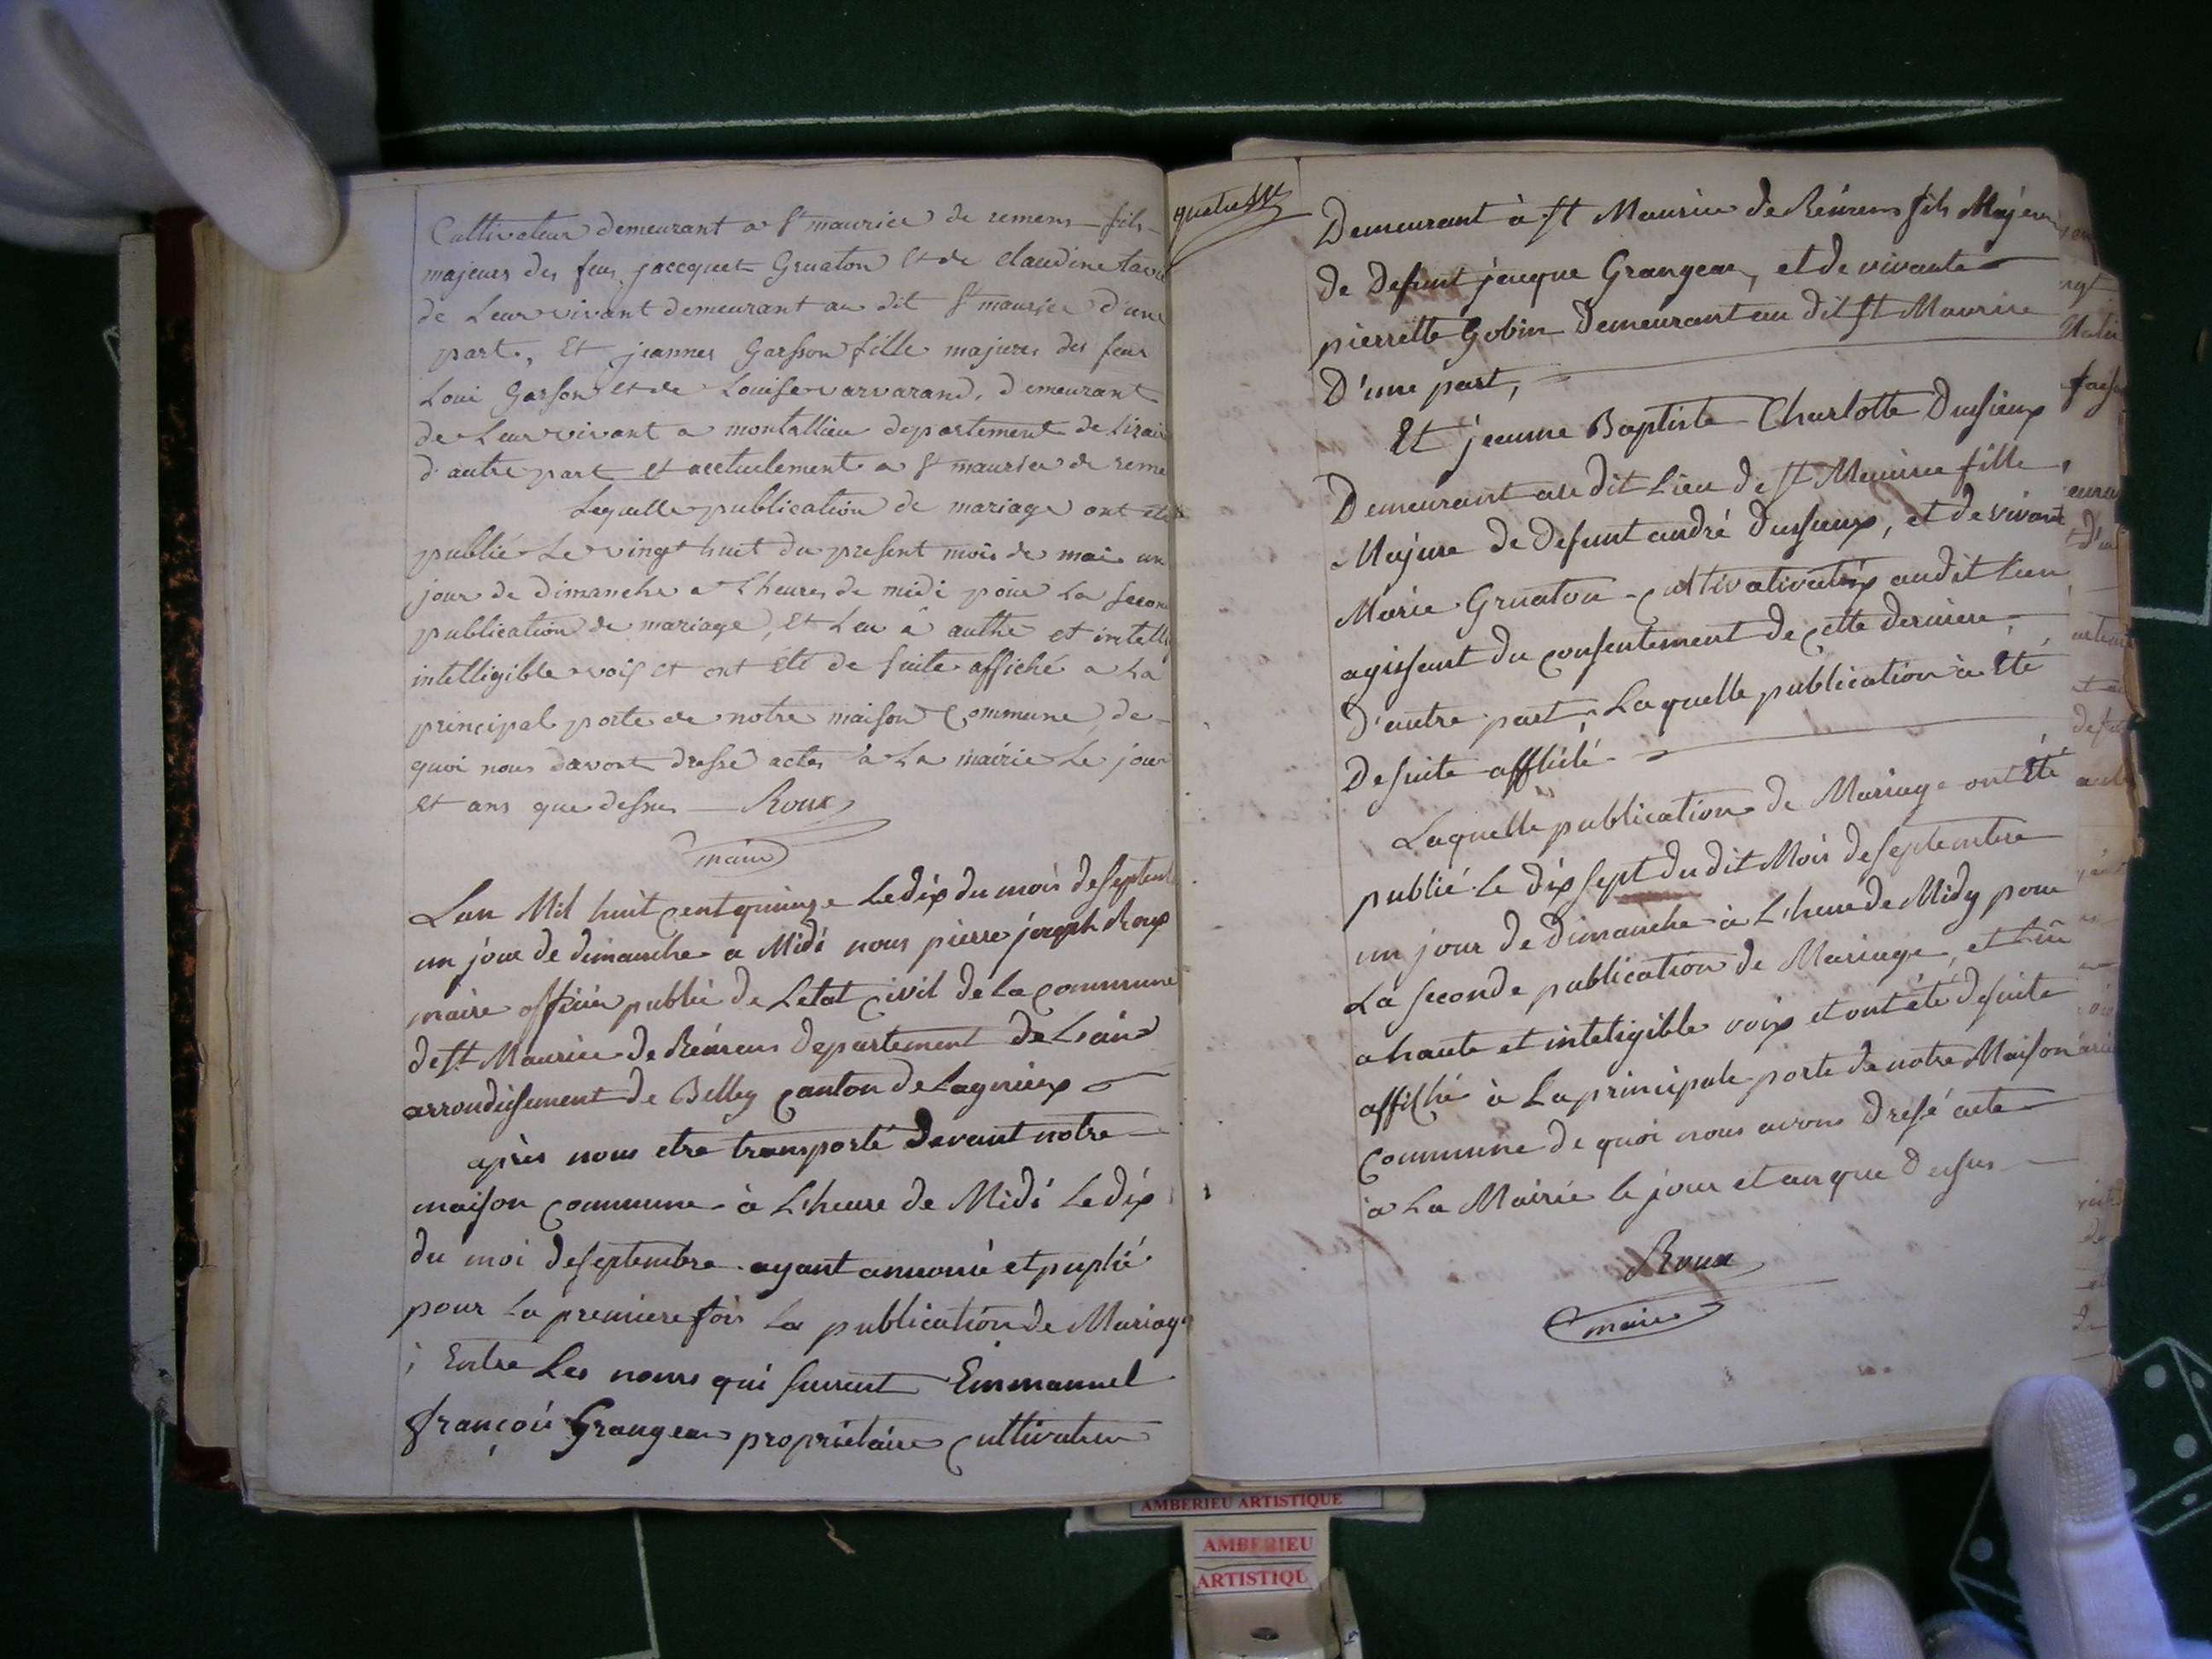 Cultivateur demeurant a St maurice de remens fils
majeures des feus jaccquet Gruaton et de claudine
de Leur vivant demeurant au dit St maurice d'une
part, Et jeannes Garsson fille majures des feus
Loui Garson et de Louise varvarand, demeurant
de Leur vivant a montallieu departement de Lizair
d'autre part et acctuelement a St maurice de reme
Lequelle publication de mariage ont été
publié Le vingt huit du present mois de mai un
jour de dimanche a Lheures de midi pour La secon
publication de mariage, Et Leu à authe et intelli
intelligible voix et ont été de suite affiché a La
principal porte de notre maison Commune, de
quoi nous davont dressé actes à La mairie Le jour
et ans que dessus Roux
maire
Lan Mil huit Cent quinze Le dix du mois de septemb
un jour de dimanche a Midi nous pierre joseph Roux
maire officier public de Letat Civil de la Commune
de St Maurice de Rémens departement de L'ain
arrondissement de Belley Canton de Lagnieux
après nous etre transporté devant notre
maison Commune à L'heure de Midi Le dix
du moi de septembre ayant annoncé et puplié
pour La premiere fois La publication de Mariage
; Entre Les noms qui suivent Emmanuel
françois Grangeas propriétaire Cultivateur
Demeurant à St Maurice de Rémens fils Majeur
de Defunt jacque Grangeas, et de vivante
pierrette Gobin Demeurant au dit St Maurice
D'une part,
Et jeanne Baptiste Charlotte Dussieux
Demeurant au dit Lieu de St Maurice fille
Majure de Defunt andré Dussieux, et de vivante
Marie Gruaton Cultivativatrix audit lieu
agissant du Consentement de Cette derniere
D'autre part, Laquelle publication à Eté
De suite affiché
Laquelle publication de Mariage ont Eté
publié le dix sept du dit Mois de septembre
un jour de dimanche à L'heure de Midy pour
La seconde publication de Mariage, et Lû
a haute et inteligible voix et ont été de suite
affiché à La principale porte de notre Maison
Commune de quoi nous avons Dressé acte
à La Mairie le jour et an que Dessus
Roux
maire
AMBERIEU ARTISTIQUE
AMBERIEU
ARTISTIQU